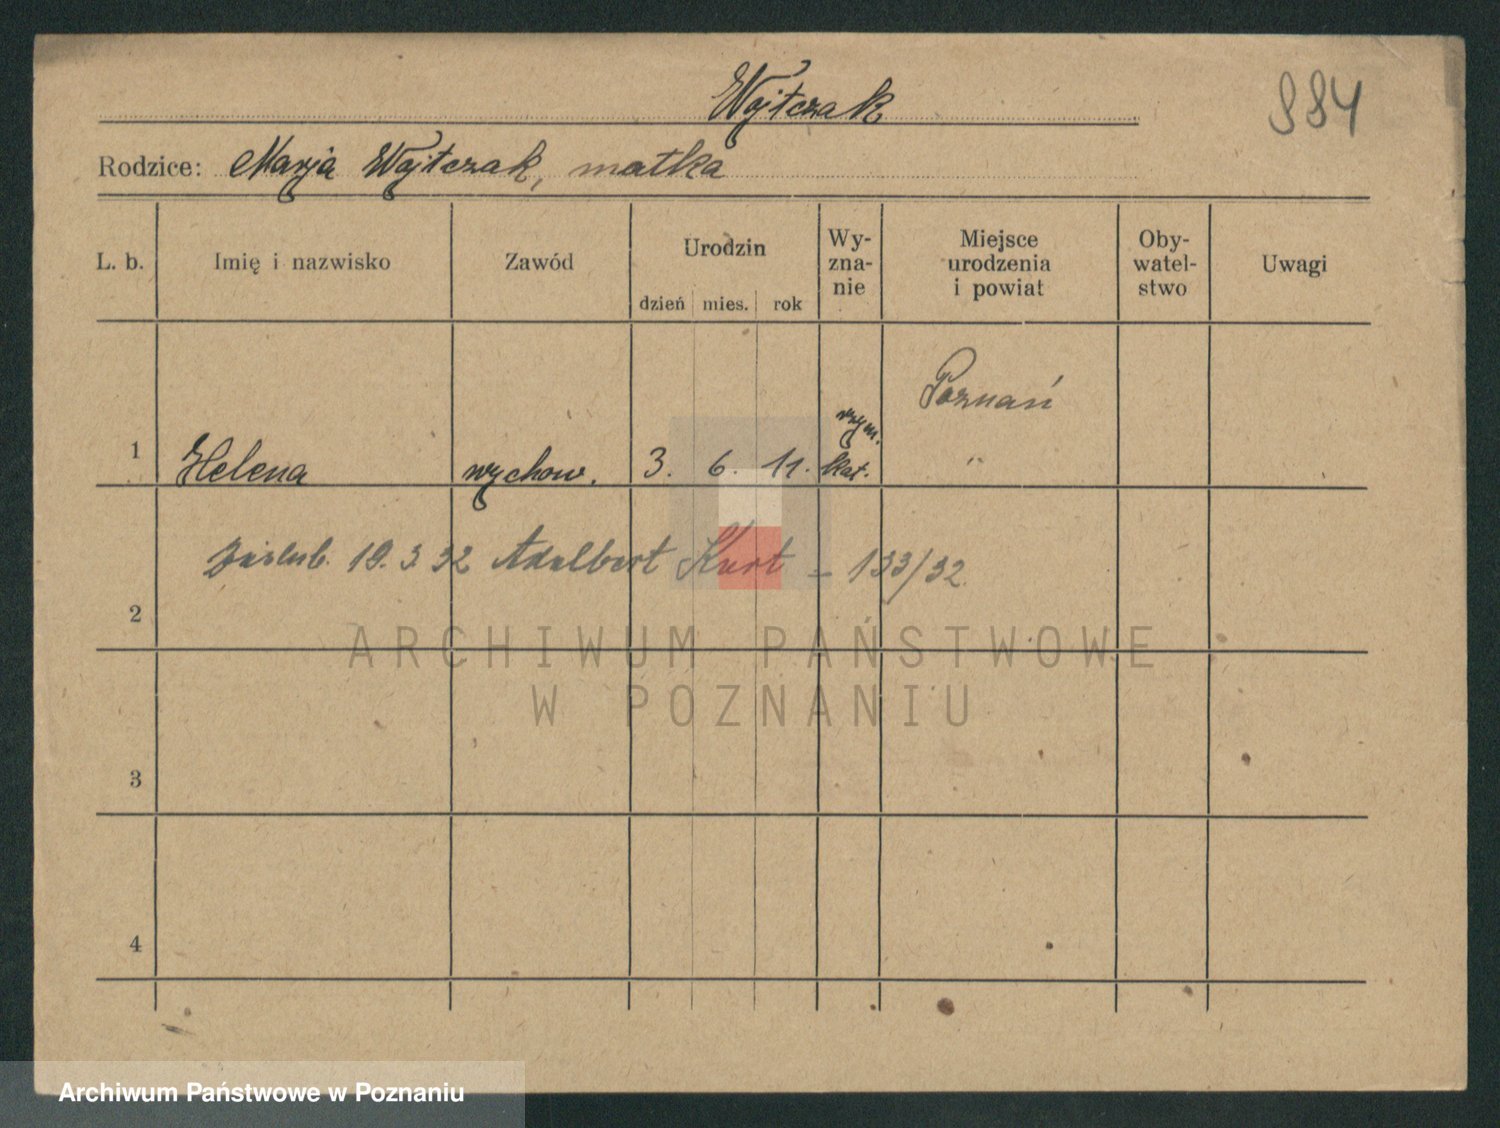 Wojtczak
984
Rodzice: Marja Wojtczak, matka
L. b. Imię i nazwisko Zawód Urodzin Wy-zna-nie Miejsce urodzenia i powiat Oby-watel-stwo Uwagi
dzień mies. rok
Poznań
1 Helena wychow. 3. 6. 11. rzym. kat. "
zaślub. 19. 3. 32 Adalbert Kurt – 133/32
2
ARCHIWUM PAŃSTWOWE
W POZNANIU
3
4
Archiwum Państwowe w Poznaniu